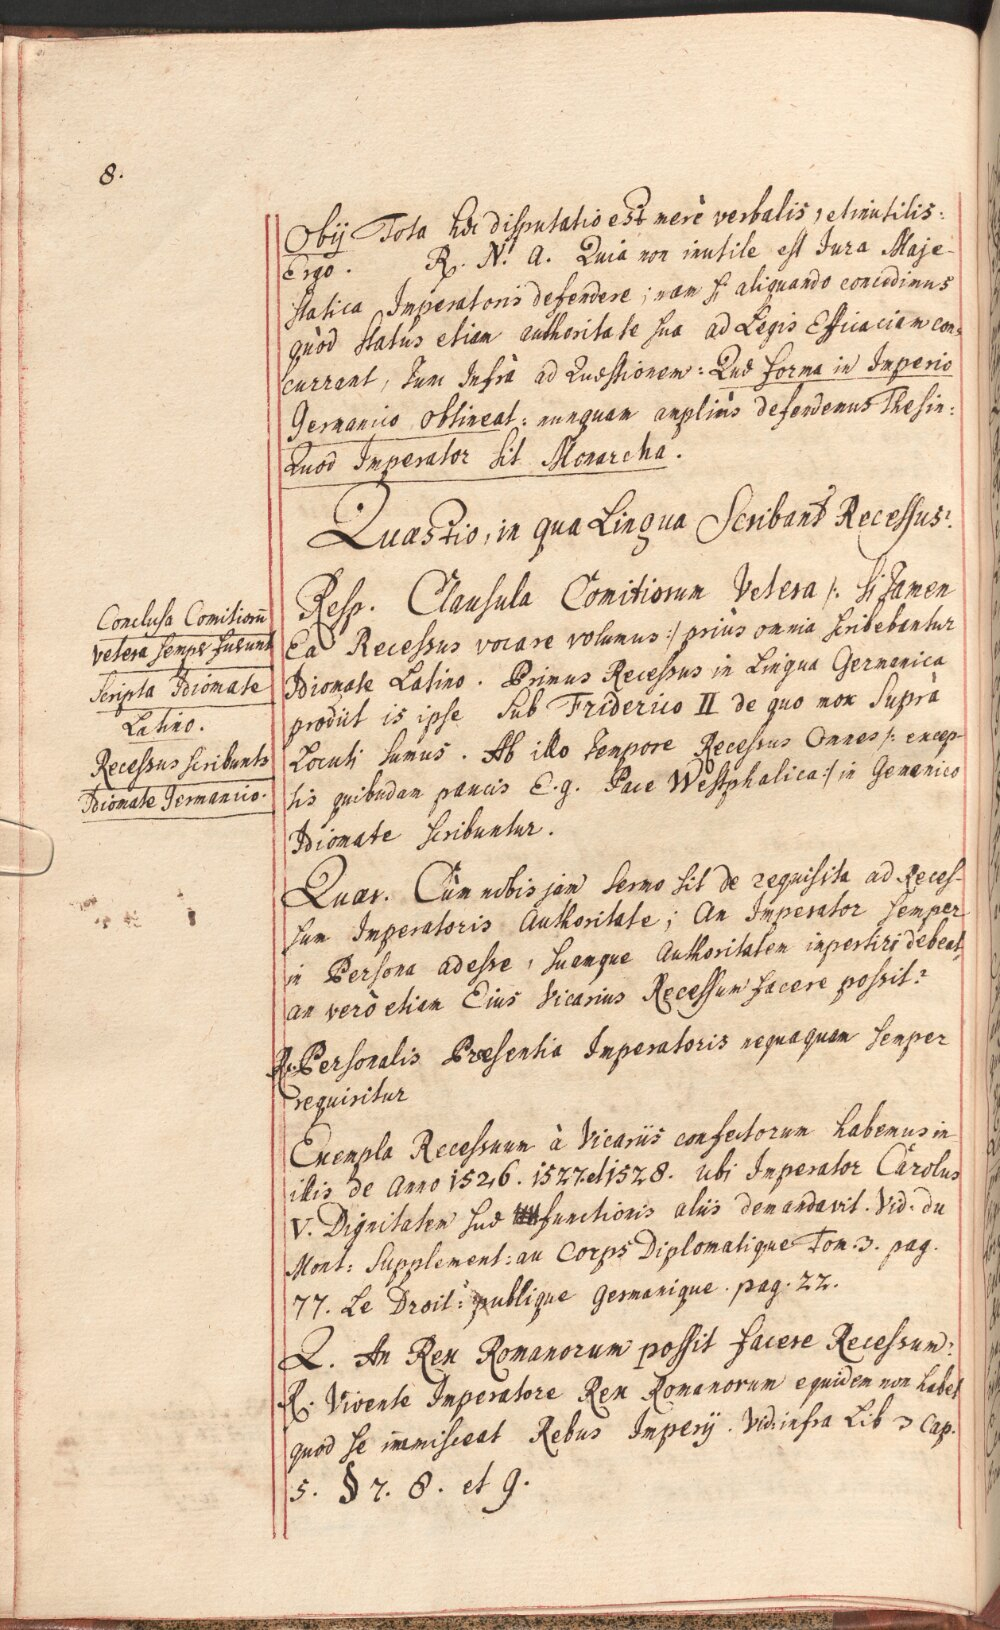 8.
Obij Tota hæc disputatio est merè verbalis, et inutilis:
Ergo. R. N. A. Quia non inutile est Jura Maje-
statica Imperatoris defendere; nam si aliquando concedimus
quòd status etiam authoritate sua ad Legis Efficaciam con-
currant, tum Infrà ad Quæstionem: Quæ forma in Imperio
Germanico obtineat: nunquam ampliùs defendemus Thesin:
Quod Imperator sit Monarcha.
Quæstio, in qua Lingua Scribantr Recessus?
Resp. Clausula Comitiorum Vetera /: si tamen
Ea Recessus vocare volumus :/ priùs omnia scribebantur
Idiomate Latino. Primus Recessus in Lingua Germanica
prodiit is ipse sub Friderico II de quo mox suprà
Locuti sumus. Ab illo tempore Recessus Omnes /: excep-
tis quibusdam paucis E.g. Pace Westphalica :/ in Gemanico
Idiomate scribuntur.
Conclusa Comitiorū
vetera sempr fuerunt
scripta Idiomate
Latino.
Recessus scribuntr
Idiomate Germanico.
Quær. Cùm nobis jam sermo sit de requisita ad Reces-
sum Imperatoris Authoritate; An Imperator semper
in Persona adesse, suamque Authoritatem impertiri debeat,
an verò etiam Eius Vicarius Recessum facere possit?
R. Personalis Præsentia Imperatoris nequaquam semper
requiritur
Exempla Recessuum à Vicariis confectorum habemus in
illis de Anno 1526. 1527. et 1528. ubi Imperator Carolus
V. Dignitatem suæ functionis aliis demandavit. Vid. du
Mont: Supplement: au Corps Diplomatique Tom. 3. pag.
77. Le Droit: publique Germanique. pag. 22.
Q. An Rex Romanorum possit facere Recessum?
R. Vivente Imperatore Rex Romanorum equidem non habet
quod se immisceat Rebus Imperij. Vid: infra Lib 3 Cap.
5. § 7. 8. et 9.